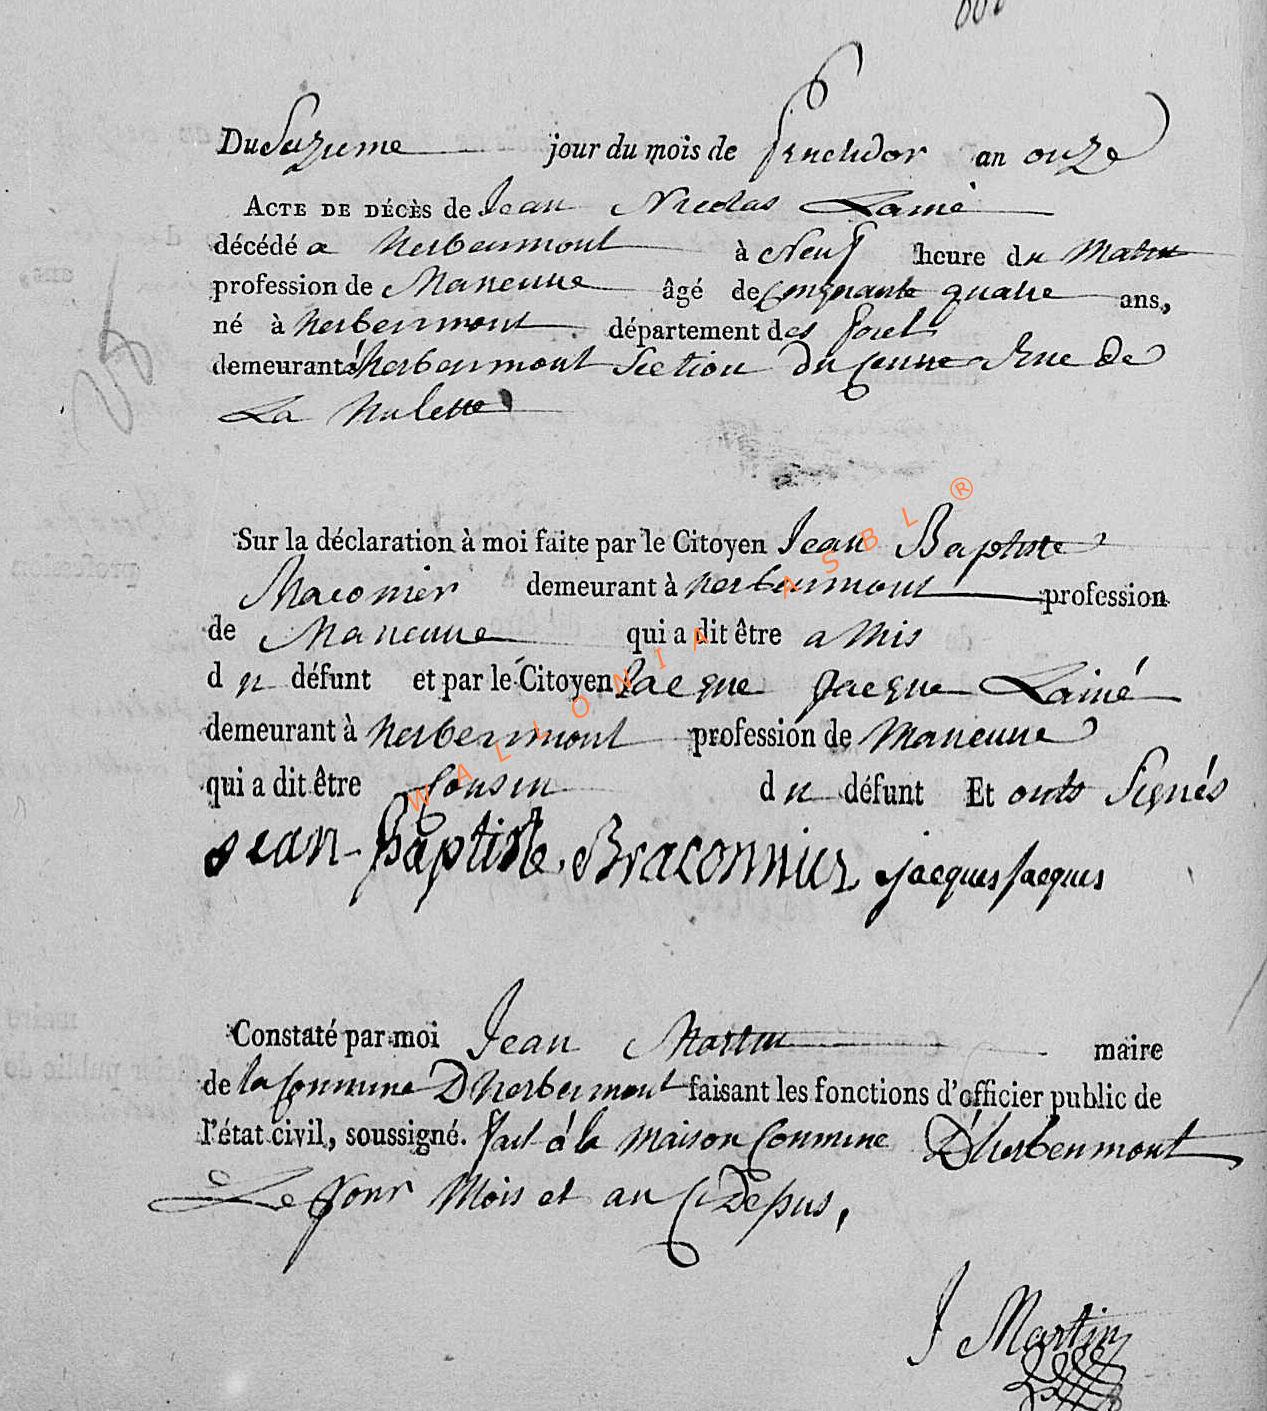 Du Suzieme jour du mois de fructidor an onze
ACTE DE DÉCÈS de Jean Nicolas Lainé
décédé a herbeumont à Neuf heure du Matin
profession de Maneuvre âgé de Cinquante quatre ans,
né à herbeumont département des foret
demeurant à herbeumont Section du Centre Rue de
La
Sur la déclaration à moi faite par le Citoyen Jean Baptiste
demeurant à herbeumont profession
de Maneuvre qui a dit être amis
du défunt et par le Citoyen Jacque Jacque Lainé
demeurant à herbeumont profession de Maneuvre
qui a dit être Cousin du défunt Et onts Signés
Jean-Baptiste Braconnier jacques jacques
Constaté par moi Jean Martin maire
de la Commune D'herbeumont faisant les fonctions d'officier public de
l'état civil, soussigné. fait á la Maison Commune D'herbeumont
Le Jour Mois et an Cy Depus,
J Martin
WALLONIA ASBL ®